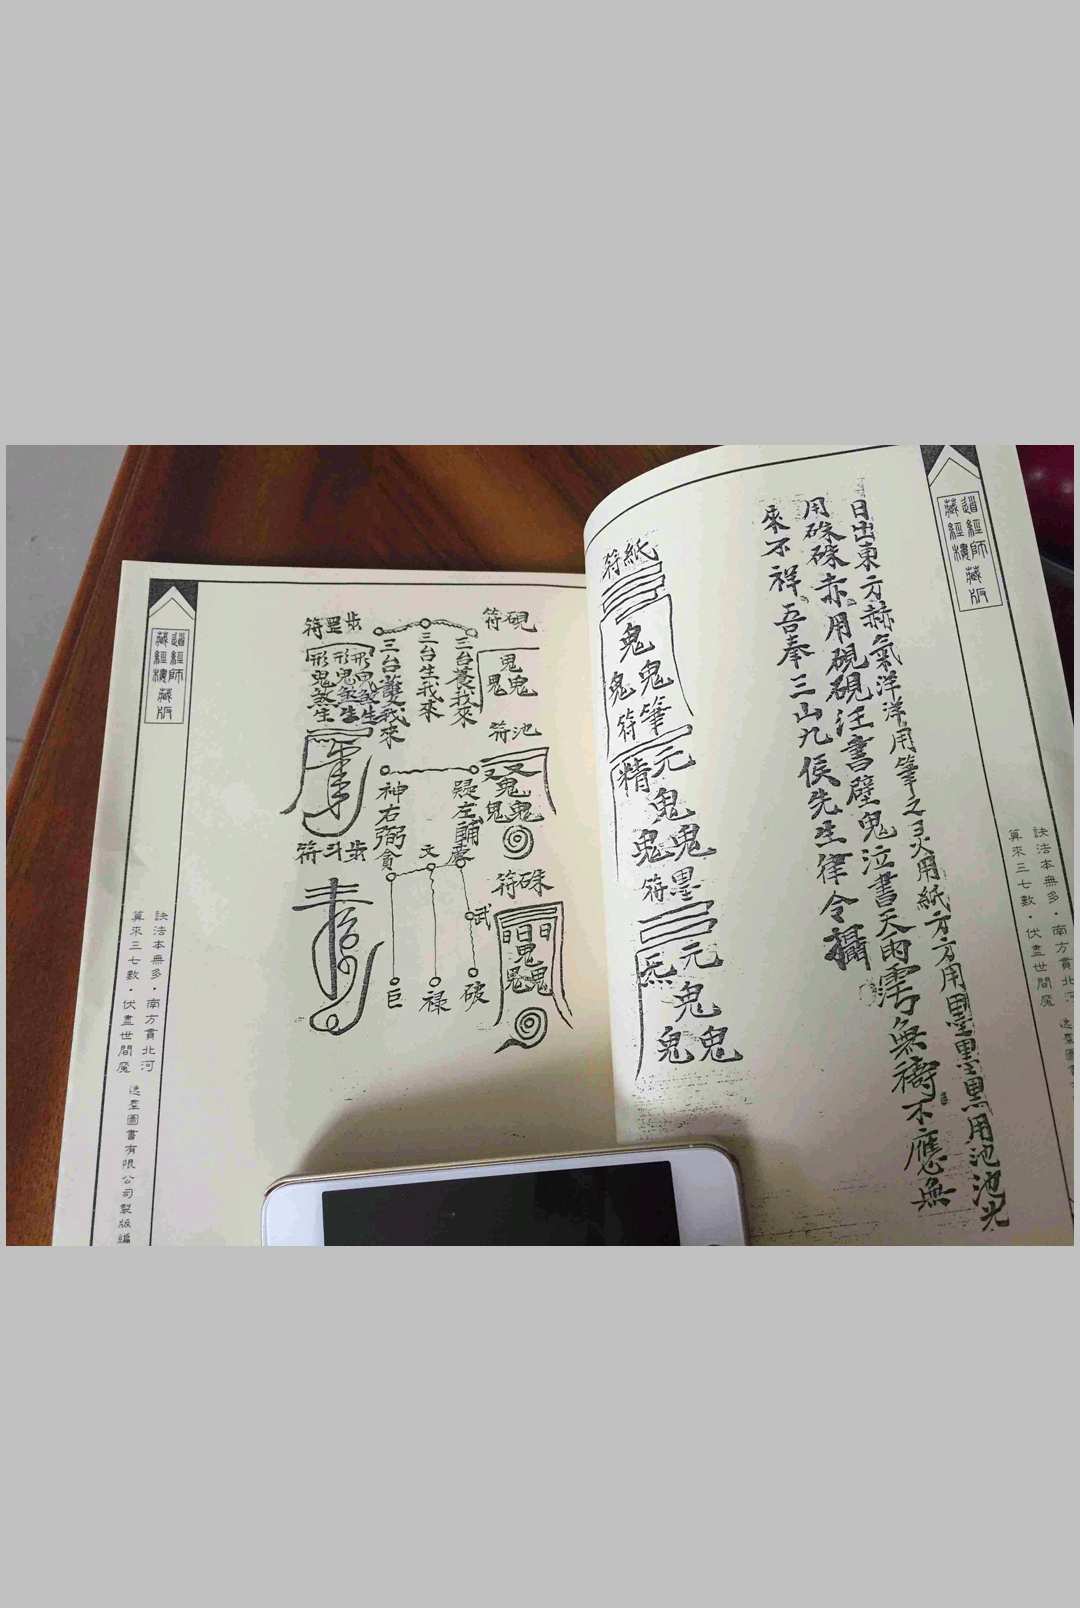 道經師藏版
藏經樓
訣法本無多・南方貫北河
算來三七數・伏盡世間魔
日出東方赫氣洋洋用筆之灵用紙方方用墨墨黑用池池光
用硃硃赤用硯硯汪書壁鬼泣書天雨霑無禱不應無
來不祥吾奉三山九侯先生律令攝
紙符
鬼
鬼鬼
筆符
元精
鬼
鬼鬼
墨符
元炁
鬼
鬼鬼
硯符
鬼
鬼鬼
池符
鬼
鬼鬼
硃符
鬼
鬼鬼
三台養我來
三台生我來
三台護我來
左輔
神右弼
貪
文
武
破
祿
巨
步罡符
形鬼煞生
形鬼煞生
形鬼煞生
步斗符
道經師藏版
藏經樓
訣法本無多・南方貫北河
算來三七數・伏盡世間魔
逸群圖書有限公司製版編